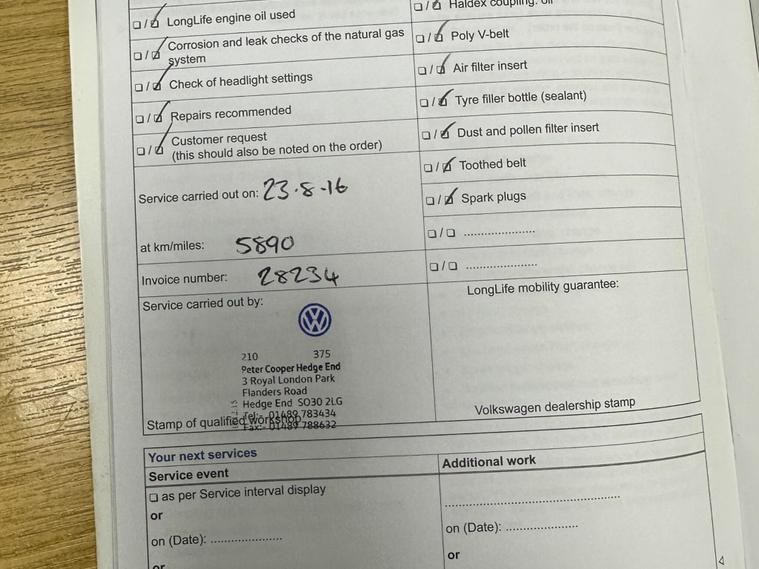 LongLife engine oil used
Corrosion and leak checks of the natural gas
system
Check of headlight settings
Repairs recommended
Customer request
(this should also be noted on the order)
Service carried out on: 23.8.16
at km/miles: 5890
Invoice number: 28234
Service carried out by:
210 375
Peter Cooper Hedge End
3 Royal London Park
Flanders Road
Hedge End SO30 2LG
Tel:- 01489 783434
Fax:- 01489 788632
Stamp of qualified workshop
Haldex coupling: oil
Poly V-belt
Air filter insert
Tyre filler bottle (sealant)
Dust and pollen filter insert
Toothed belt
Spark plugs
LongLife mobility guarantee:
Volkswagen dealership stamp
Your next services
Service event
as per Service interval display
or
on (Date): ....................
or
Additional work
on (Date): ....................
or